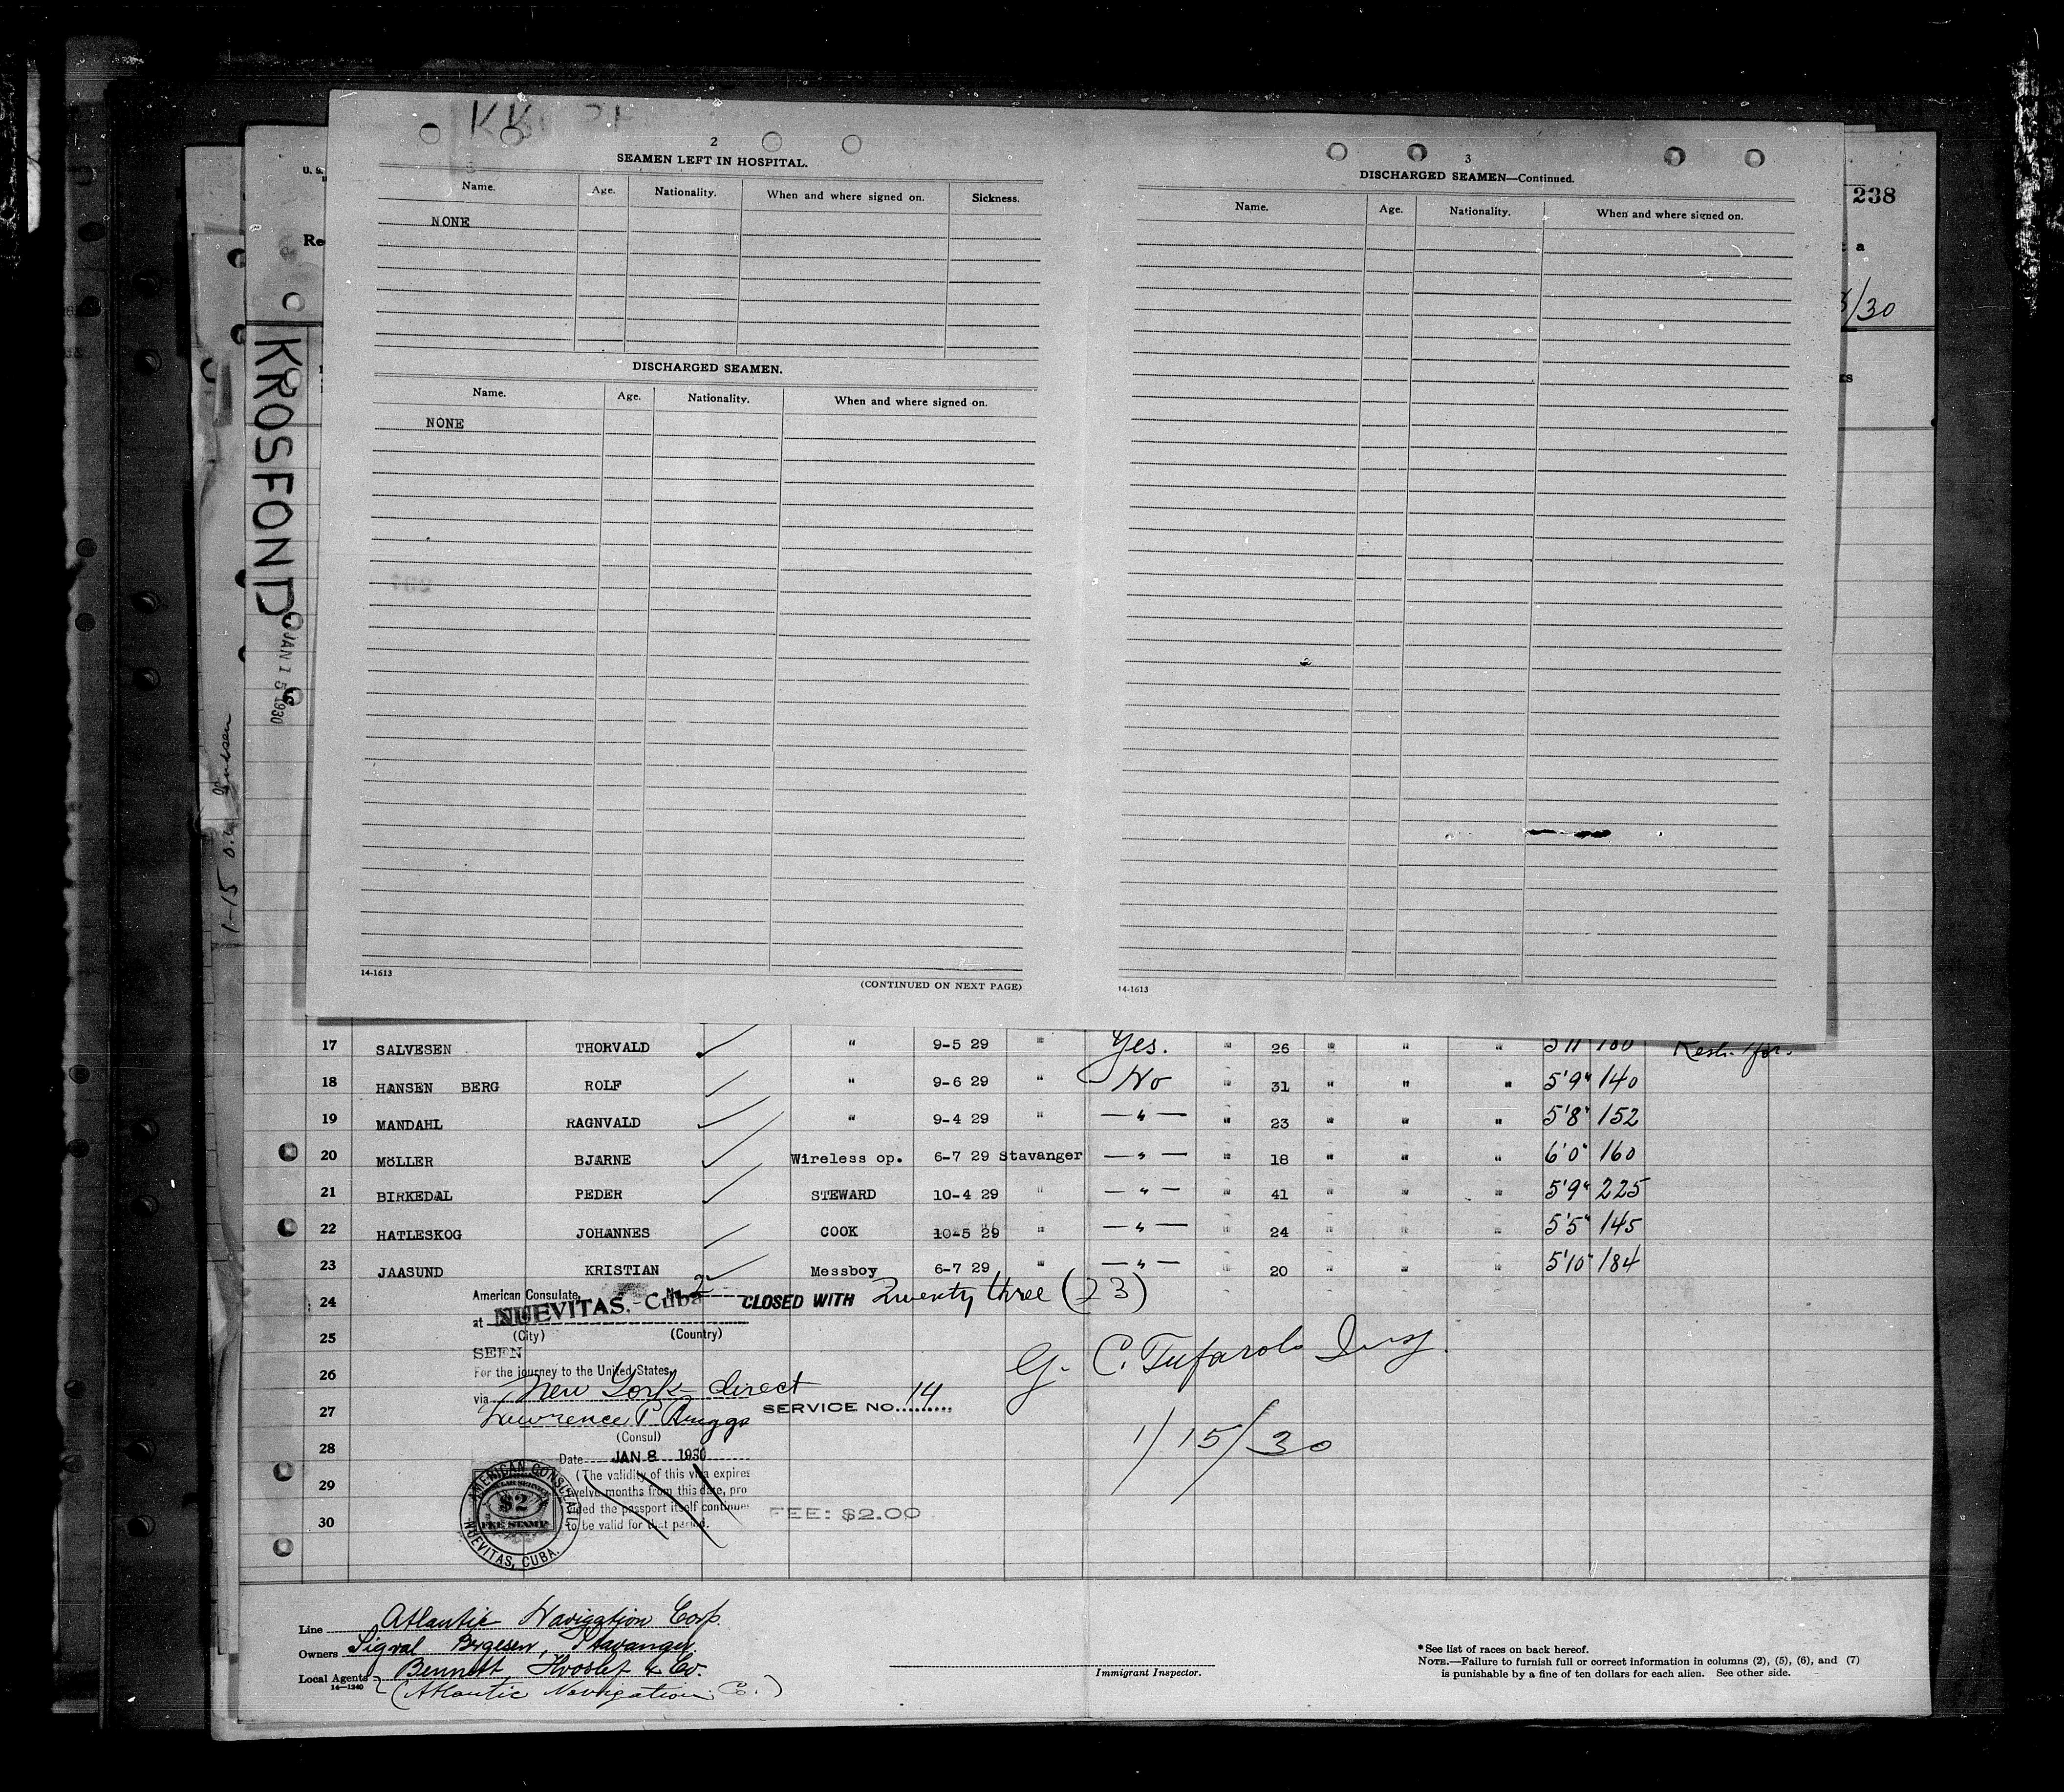 2
SEAMEN LEFT IN HOSPITAL.
Name. Age. Nationality. When and where signed on. Sickness.
NONE
DISCHARGED SEAMEN.
Name. Age. Nationality. When and where signed on.
NONE
14-1613
(CONTINUED ON NEXT PAGE)
3
DISCHARGED SEAMEN—Continued.
Name. Age. Nationality. When and where signed on.
14-1613
238
/30
U. S.
KROSFOND
JAN 15 1930
1-15
17 SALVESEN THORVALD " 9-5 29 " Yes. " 26 " " " 5'11 180
18 HANSEN BERG ROLF " 9-6 29 " No " 31 " " " 5'9" 140
19 MANDAHL RAGNVALD " 9-4 29 " —"— " 23 " " " 5'8" 152
20 MöLLER BJARNE Wireless op. 6-7 29 Stavanger —"— " 18 " " " 6'0" 160
21 BIRKEDAL PEDER STEWARD 10-4 29 " —"— " 41 " " " 5'9" 225
22 HATLESKOG JOHANNES COOK 10-5 29 " —"— " 24 " " " 5'5" 145
23 JAASUND KRISTIAN Messboy 6-7 29 " —"— " 20 " " " 5'10" 184
24
25
26
27
28
29
30
American Consulate,
at NUEVITAS, Cuba
(City) (Country)
SEEN
For the journey to the United States,
via New York direct
Lawrence P. Briggs
(Consul)
Date JAN 8 1930
(The validity of this visa expires
twelve months from this date, pro
vided the passport itself continues
to be valid for that period.
AMERICAN CONSULATE
NUEVITAS, CUBA.
$2
FEE STAMP
CLOSED WITH Twenty three (23)
G. C. Tufarolo Insp.
SERVICE NO. 14
1/15/30
FEE: $2.00
Line Atlantic Navigation Corp.
Owners Sigval Bergesen, Stavanger.
Local Agents Bennett, Hvoslef & Co.
14—1240
(Atlantic Navigation Co.)
Immigrant Inspector.
*See list of races on back hereof.
NOTE.—Failure to furnish full or correct information in columns (2), (5), (6), and (7)
is punishable by a fine of ten dollars for each alien. See other side.